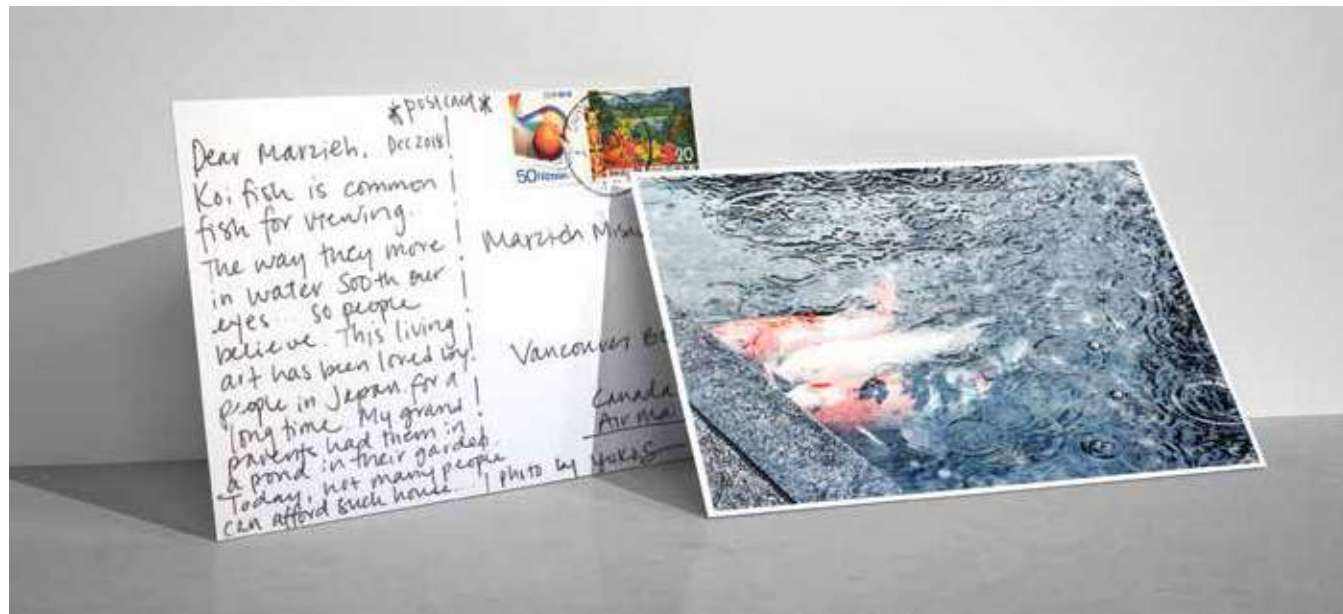 *postcard*
Dear Marzieh, Dec 2018
Koi fish is common
fish for viewing.
The way they move
in water sooth our
eyes so people
believe. This living
art has been loved by
people in Japan for a
long time. My grand
parents had them in
a pond in their garden.
Today, not many people
can afford such house.
50 NIPPON
20
Marzieh
Vancouver BC
Canada
Air Mai
photo by Yuko S